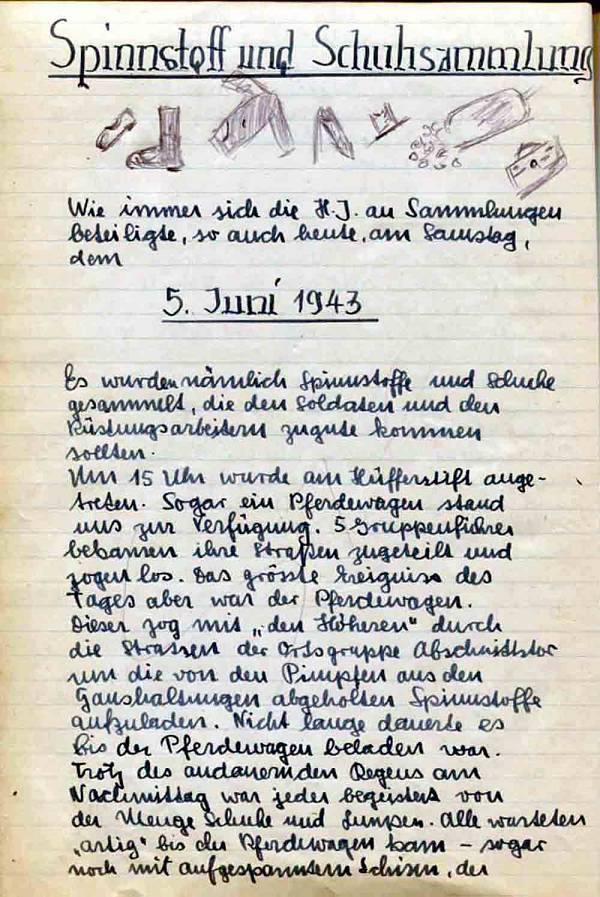 Spinnstoff und Schuhsammlung
Wie immer sich die H.J. an Sammlungen
beteiligte, so auch heute, am Samstag,
dem
5. Juni 1943
Es wurden nämlich Spinnstoffe und Schuhe
gesammelt, die den Soldaten und den
Rüstungsarbeitern zugute kommen
sollten.
Um 15 Uhr wurde am Hüfferstift ange-
treten. Sogar ein Pferdewagen stand
uns zur Verfügung. 5 Gruppenführer
bekamen ihre Straßen zugeteilt und
zogen los. Das grösste Ereignis des
Tages aber war der Pferdewagen.
Dieser zog mit „den Höheren" durch
die Strassen der Ortsgruppe Abschnittstor
um die von den Pimpfen aus den
Haushaltungen abgeholten Spinnstoffe
aufzuladen. Nicht lange dauerte es
bis der Pferdewagen beladen war.
Trotz des andauernden Regens am
Nachmittag war jeder begeistert von
der Menge Schuhe und Lumpen. Alle warteten
„artig" bis der Pferdewagen kam – sogar
noch mit aufgespanntem Schirm, der